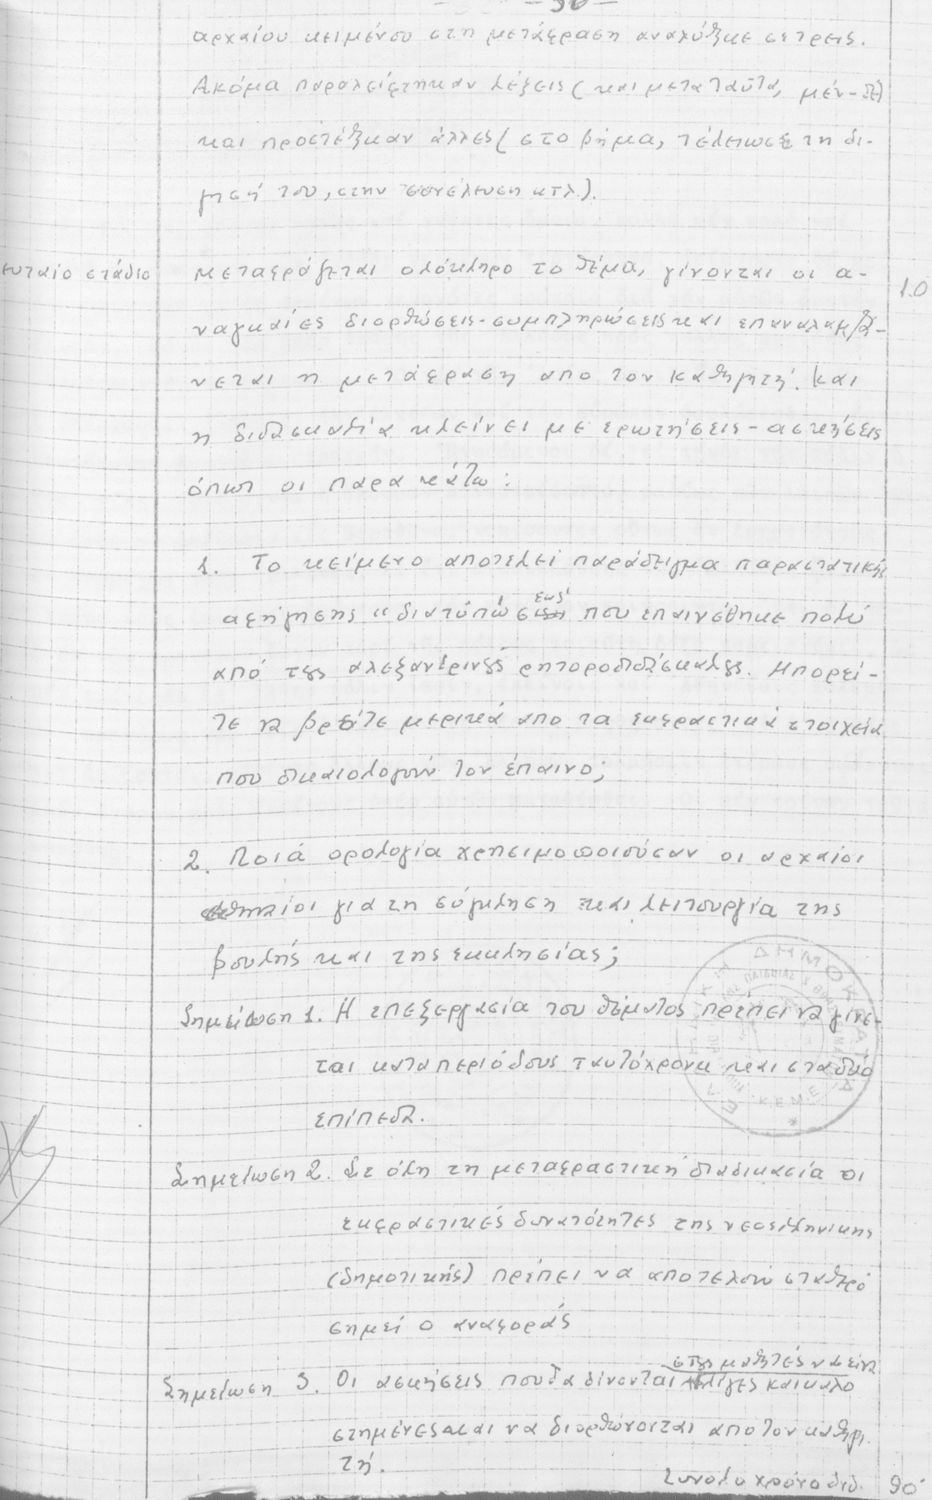 - 36 -
αρχαίου κειμένου στη μετάφραση αναλύθηκε σε τρεις.
Ακόμα παραλείφτηκαν λέξεις (και μετά ταῦτα, μέν-δέ)
και προστέθηκαν άλλες (στο βήμα, τέλειωσε τη δι-
ήγησή του, στην συνέλευση κτλ.).
ευταίο στάδιο
Μεταφράζεται ολόκληρο το θέμα, γίνονται οι α-
10
ναγκαίες διορθώσεις-συμπληρώσεις και επαναλαμβά-
νεται η μετάφραση απο τον καθηγητή. Και
η διδασκαλία κλείνει με ερωτήσεις-ασκήσεις
όπως οι παρακάτω:
1. Το κείμενο αποτελεί παράδειγμα παραστατικής
αφήγησης "διατύπώσεως" που επαινέθηκε πολύ
από τους αλεξανδρινούς ρητοροδιδάσκαλους. Μπορεί-
τε να βρείτε μερικά απο τα εκφραστικά στοιχεία
που δικαιολογούν τον έπαινο;
2. Ποιά ορολογία χρησιμοποιούσαν οι αρχαίοι
αθηναίοι για τη σύγκληση και λειτουργία της
βουλής και της εκκλησίας;
Σημείωση 1. Η επεξεργασία του θέματος πρέπει να γίνε-
ται κατα περιόδους ταυτόχρονα και στα δύο
επίπεδα.
Σημείωση 2. Σε όλη τη μεταφραστική διαδικασία οι
εκφραστικές δυνατότητες της νεοελληνικής
(δημοτικής) πρέπει να αποτελούν σταθερό
σημείο αναφοράς
στους μαθητές να είναι
Σημείωση 3. Οι ασκήσεις που θα δίνονται λίγες και καλο
στημένες και να διορθώνονται απο τον καθηγη-
τή.
Σύνολο χρόνο διδ. 90'
ΕΛΛΗΝΙΚΗ ΔΗΜΟΚΡΑΤΙΑ
Κ.Ε.Μ.Ε.